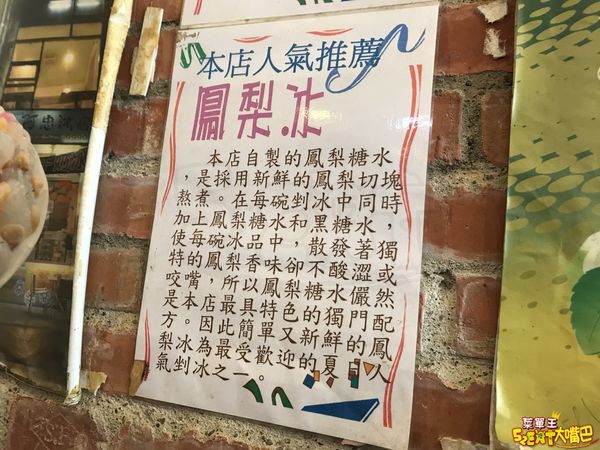 本店人氣推薦
鳳梨冰
本店自製的鳳梨糖水
，是採用新鮮的鳳梨切塊
熬煮。在每碗剉冰中同時，
加上鳳梨糖水和黑糖水，
使每碗冰品中，散發著獨
特的鳳梨香味，卻不酸澀或
咬嘴，所以鳳梨糖水儼然
是本店最具特色的獨門配
方。因此簡單又新鮮的鳳
梨冰為最受歡迎的夏日人
氣剉冰之一。
菜單王
SZEAT大嘴巴